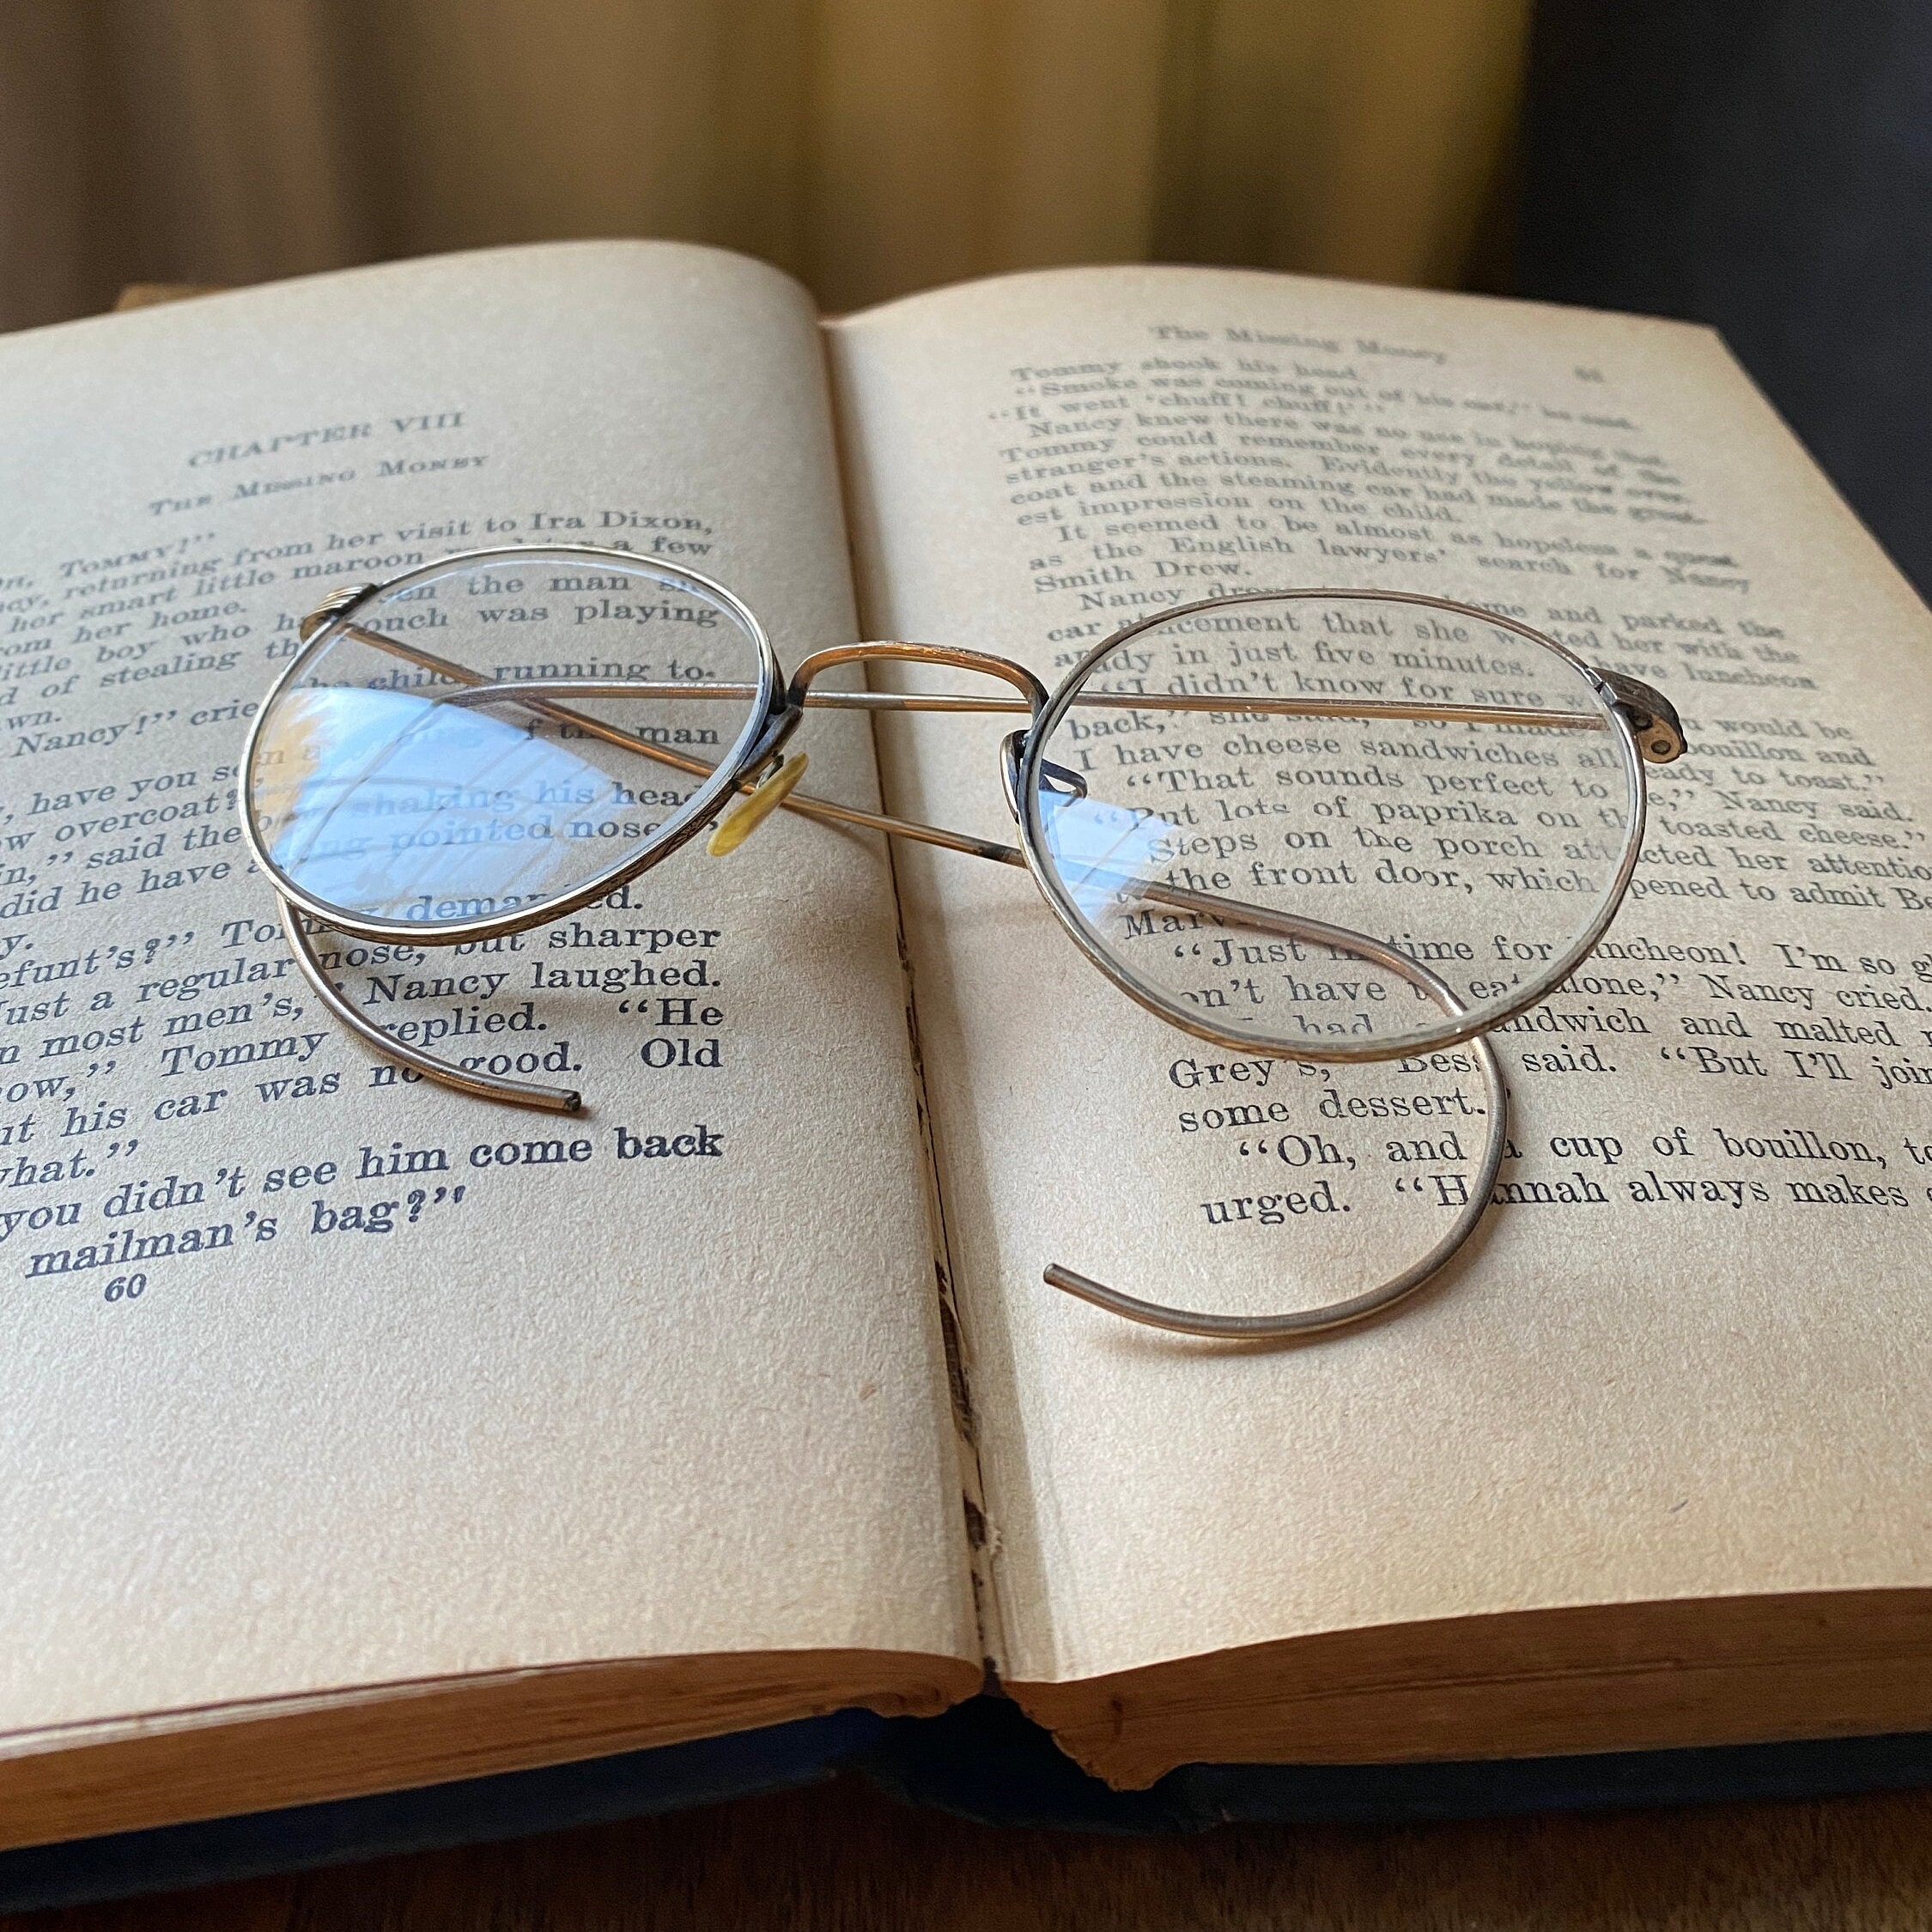 CHAPTER VIII
THE MISSING MONEY
TOMMY!”
returning from her visit to Ira Dixon,
her smart little maroon a few
from her home.
little boy who the man
of stealing pouch was playing
Nancy!” child running to-
of the man
have you
overcoat?
shaking his head
said the pointed nose
did he have
demanded.
Tommy nose, but sharper
Just a regular Nancy laughed.
most men's,”
Tommy replied. “He
his car was no good. Old
what.”
you didn't see him come back
mailman's bag?”
60
The Missing Money 61
Tommy shook his head.
“Smoke was coming out of his car,” he said.
“It went ‘chuff! chuff!’ ”
Nancy knew there was no use in hoping that
Tommy could remember every detail of the
stranger's actions. Evidently the yellow over-
coat and the steaming car had made the great-
est impression on the child.
It seemed to be almost as hopeless a quest
as the English lawyers' search for Nancy
Smith Drew.
Nancy drove home and parked the
car that she with the
in just five minutes. have luncheon
“I didn't know for sure would be
back,” she said, “so I bouillon and
I have cheese sandwiches all ready to toast.”
“That sounds perfect to Nancy said.
“Put lots of paprika on the toasted cheese.”
Steps on the porch attracted her
the front door, which opened to admit
“Just in time for luncheon! I'm so
don't have to eat alone,” Nancy cried.
had sandwich and malted
Grey's,” Bess said. “But I'll
some dessert.”
“Oh, and a cup of bouillon,
urged. “Hannah always makes